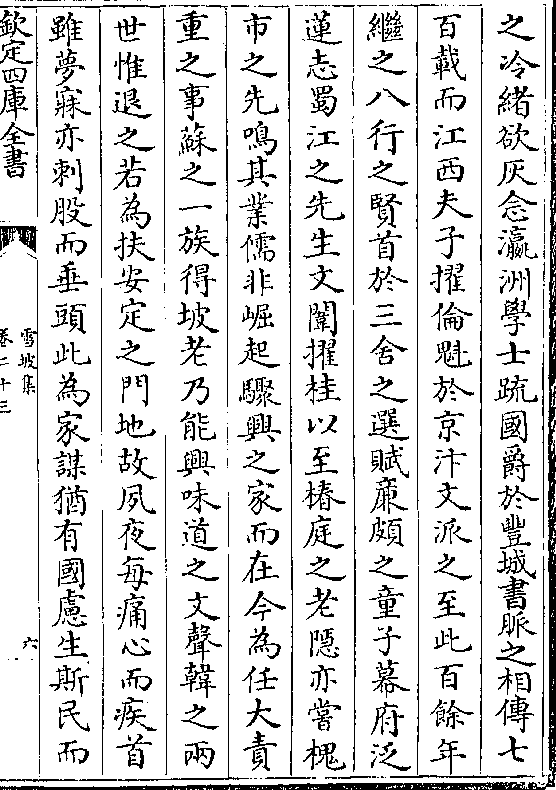 之冷緒欲灰念瀛洲學士䟽國爵於豐城書脈之相傳七
百載而江西夫子擢倫魁於京汴文派之至此百餘年
繼之八行之賢首於三舍之選賦亷頗之童子幕府泛
蓮志蜀江之先生文闈擢桂以至椿庭之老隠亦嘗槐
市之先鳴其業儒非崛起驟興之家而在今為任大責
重之事蘇之一族得坡老乃能興味道之文聲韓之兩
世惟退之若為扶安定之門地故夙夜每痛心而疾首
雖夢寐亦刺股而垂頭此為家謀猶有國慮生斯民而
欽定四庫全書
雪坡集
卷二十三
六